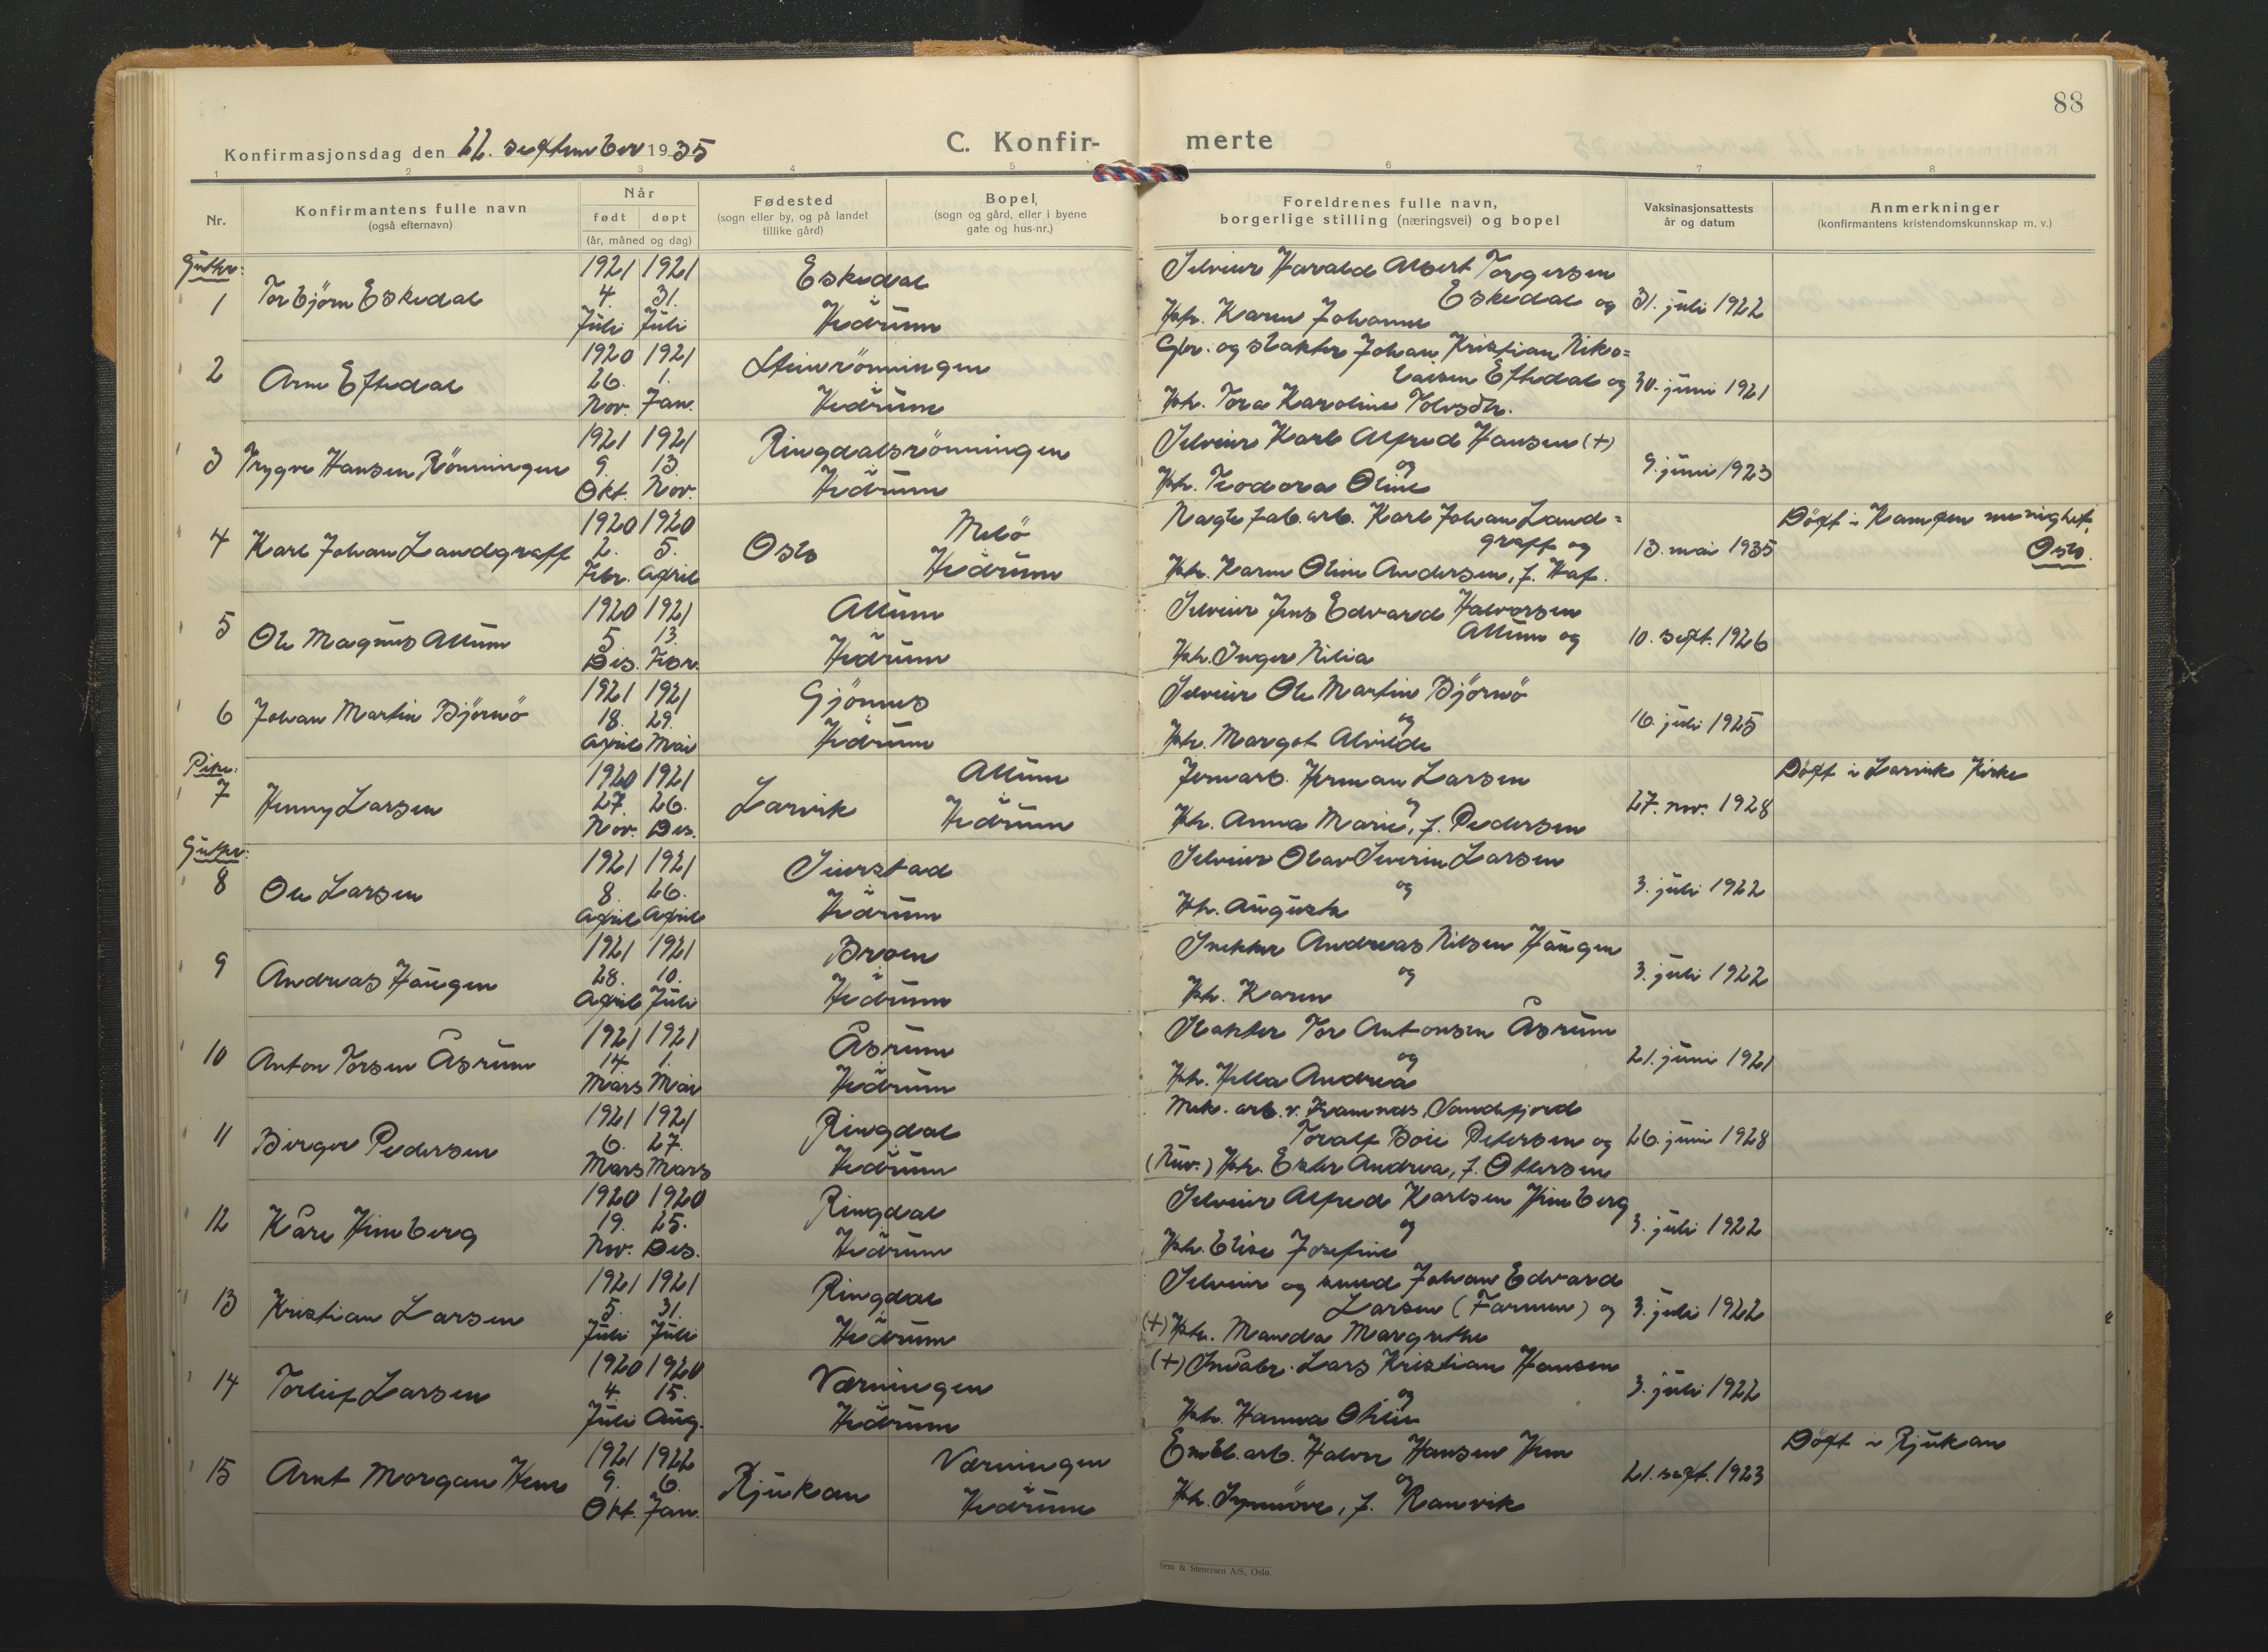 88
Konfirmasjonsdag den 22. september 1935
C. Konfir- merte
1 2 3 4 5 6 7 8
Nr.
Konfirmantens fulle navn
(også efternavn)
Når
født døpt
(år, måned og dag)
Fødested
(sogn eller by, og på landet
tillike gård)
Bopel,
(sogn og gård, eller i byene
gate og hus-nr.)
Foreldrenes fulle navn,
borgerlige stilling (næringsvei) og bopel
Vaksinasjonsattests
år og datum
Anmerkninger
(konfirmantens kristendomskunnskap m. v.)
Gutter:
1 Torbjörn Eskedal
1921 1921
4. 31.
Juli Juli
Eskedal
Hedrum
Selveier Harald Albert Torgersen
Eskedal og
Hstr. Karen Johanne
31. juli 1922
2 Arne Eftedal
1920 1921
26. 1.
Nov. Jan.
Steinrönningen
Hedrum
Gbr. og slakter Johan Kristian Niko=
laisen Eftedal og
Hstr. Tora Karoline Tolvsdtr.
30. juni 1921
3 Trygve Hansen Rönningen
1921 1921
9. 13.
Okt. Nov.
Ringdalsrönningen
Hedrum
Selveier Karl Alfred Hansen (+)
og
Hstr. Teodora Oline
9. juni 1923
4 Karl Johan Landgraff
1920 1920
2. 5.
Febr. April
Oslo
Melö
Hedrum
Naglefab. arb. Karl Johan Land=
graff og
Hstr. Karen Oline Andersen, f. Haf.
13. mai 1935
Döpt i Kampen menighet,
Oslo.
5 Ole Magnus Allum
1920 1921
5 13.
Des. Febr.
Allum
Hedrum
Selveier Jens Edvard Halvorsen
Allum og
Hstr. Inger Nilia
10. sept. 1926
6 Johan Martin Björnö
1921 1921
18. 29.
April Mai
Gjönnes
Hedrum
Selveier Ole Martin Björnö
og
Hstr. Margot Alvilde
16. juli 1925
Pike:
7 Henny Larsen
1920 1921
27. 26.
Nov. Des.
Larvik
Allum
Hedrum
Jernarb. Herman Larsen
og
Hstr. Anna Marie, f. Pedersen
27. nov. 1928
Döpt i Larvik kirke
Gutter:
8 Ole Larsen
1921 1921
8. 26.
April April
Seierstad
Hedrum
Selveier Olav Severin Larsen
og
Hstr. Augusta
3. juli 1922
9 Andreas Haugen
1921 1921
28. 10.
April Juli
Broen
Hedrum
Snekker Andreas Nilsen Haugen
og
Hstr. Karen
3. juli 1922
10 Anton Torsen Åsrum
1921 1921
14. 1.
Mars Mai
Åsrum
Hedrum
Slakter Tor Antonsen Åsrum
og
Hstr. Hella Andrea
21. juni 1921
11 Birger Pedersen
1921 1921
6. 27.
Mars Mars
Ringdal
Hedrum
Mek. arb. v. Framnæs, Sandefjord
Toralf Boie Petersen og
(Nuv.) Hstr. Ester Andrea, f. Ottersen
26. juni 1928
12 Kåre Himberg
1920 1920
19. 25.
Nov. Des.
Ringdal
Hedrum
Selveier Alfred Karlsen Himberg
og
Hstr. Elise Josefine
3. juli 1922
13 Kristian Larsen
1921 1921
5. 31.
Juli Juli
Ringdal
Hedrum
Selveier og smed Johan Edvard
Larsen (Farmen) og
(+) Hstr. Manda Margrethe
3. juli 1922
14 Torleif Larsen
1920 1920
4. 15.
Juli Aug.
Værningen
Hedrum
(+) Småbr. Lars Kristian Hansen
og
Hstr. Hanna Otelie
3. juli 1922
15 Arnt Morgan Hem
1921 1922
9. 6.
Okt. Jan.
Rjukan
Værningen
Hedrum
Emb. arb. Halvor Hansen Hem
og
Hstr. Synnöve, f. Ramvik
21. sept. 1923
Döpt i Rjukan
Sem & Stenersen A/S, Oslo.